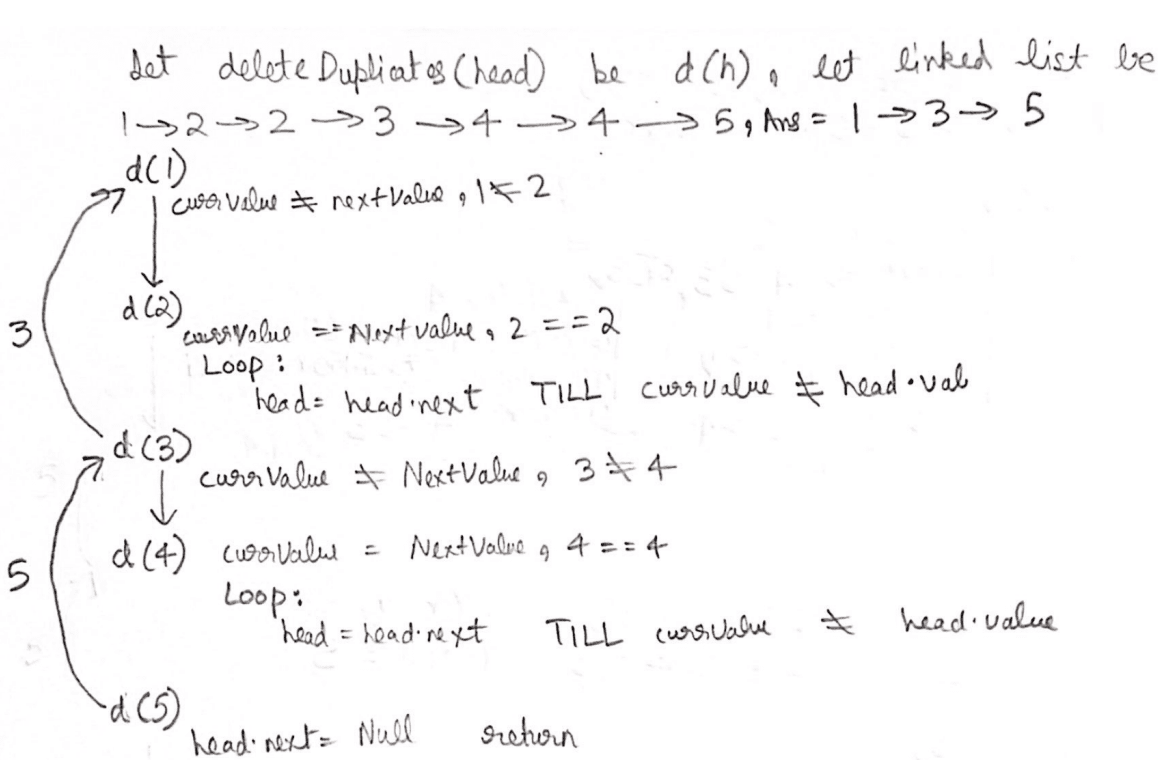 Let deleteDuplicates(head) be d(h), let linked list be
1→2→2→3→4→4→5, Ans = 1→3→5
d(1)
currValue ≠ nextValue, 1≠2
d(2)
currValue == NextValue, 2 == 2
Loop:
head = head.next TILL currValue ≠ head.val
3
d(3)
currValue ≠ NextValue, 3 ≠ 4
d(4) currValue = NextValue, 4 == 4
5
Loop:
head = head.next TILL currValue ≠ head.value
d(5)
head.next = Null return